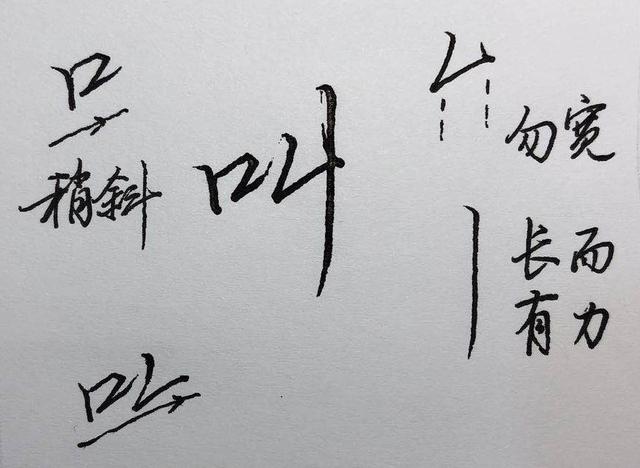 口
稍斜
叫
勿宽
长而
有力